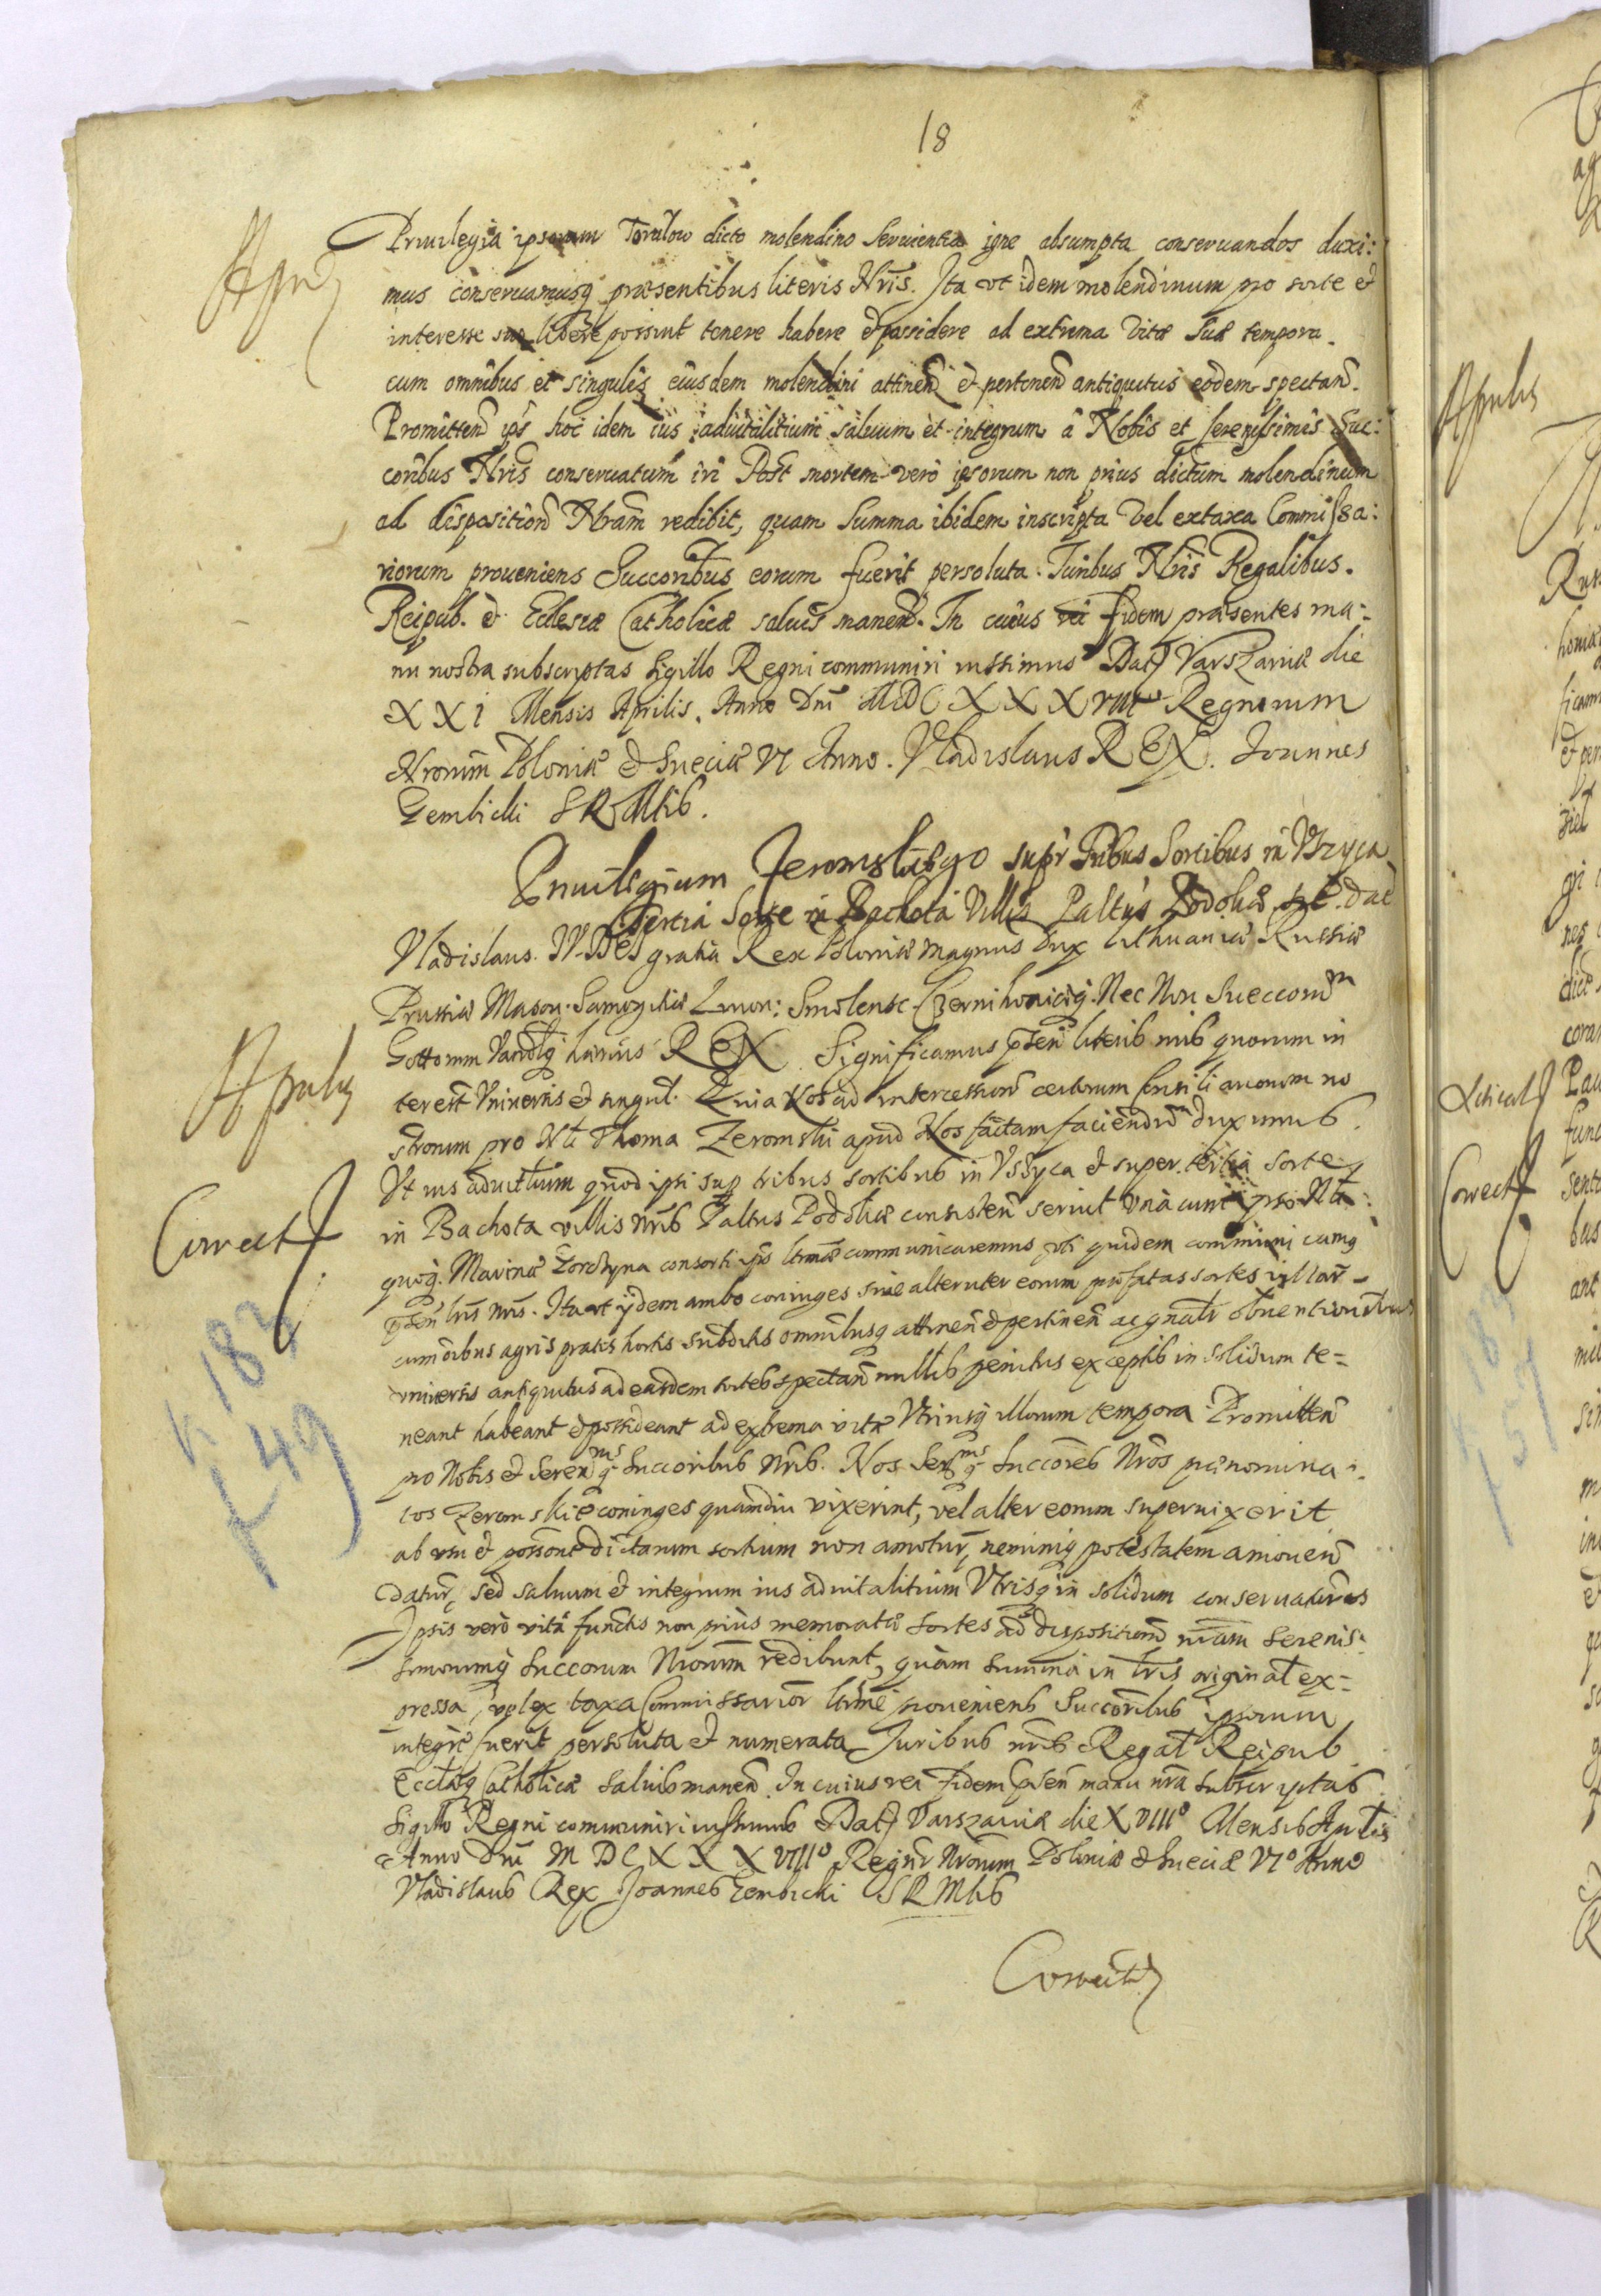 18
Priuilegia ipsorum dicto molendino seruientia igne absumpta conseruandos duxi:
mus conseruamusq præsentibus literis Nris. Ita vt idem molendinum pro sorte et
interesse suo libere possint tenere habere et possidere ad extrema vitæ suæ tempora.
cum omnibus et singulis eiusdem molendini attinen et pertinen antiquitus eodem spectan.
Promitten ips hoc idem ius aduitalitium saluum et integrum â Nobis et serenissimis Suc:
coribus Nris conseruatum iri Post mortem vero ipsorum non prius dictum molendinum
ad disposition Nram redibit, quam Summa ibidem inscripta vel ex taxa Commissa:
riorum proueniens Succoribus eorum fuerit persoluta. Iuribus Nris Regalibus.
Reipub. et Eclesiæ Catholicæ saluis manen. In cuius rei fidem præsentes ma:
nu nostra subscriptas sigillo Regni communiri iussimus Dat Varszauiæ die
XXI Mensis Aprilis. Anno Dni MDCXXXVIII Regnorum
Nrorum Poloniæ et Sueciæ VI Anno. Vladislaus REX. Joannes
Gembicki SRMtis.
Priuilegium Zeromskiego supr Tribus Sortibus in Vszyca
Tertia Sorte in Bachota Villis Paltus Podoliæ dat
Vladislaus IV. Dei gratia Rex Poloniæ Magnus Dux Lithuaniæ Russiæ
Prussiæ Masou. Samogitiæ Liuon: Smolensc. Czernihouiæq. Nec Non Sueccorum
Gottorum Vandlq hærius REX. Significamus pten literis nris quorum in
terest Vniuersis et singul. Quia Nos ad intercession certorum Consiliariorum no
strorum pro Nli Thoma Zeromski apud Nos factam faciendum duximus.
Vt ius aduitlium quod ipsi sup tribus sortibus in Vszyca et super tertia sorte
in Bachota villis nris Paltus Podoliæ consisten seruit vnà cum ipso Nli
quoq. Marinæ consorti ips ltimæ communicaremus vti quidem communicamq
pten lris nris. Ita vt ijdem ambo coniuges siue alteruter eorum præfatas sortes villar
cum oibus agris pratis hortis subditis omnibusq attinen et pertinen ac gnalr obuentionibus
vniuersis antiquitus ad easdem sortes spectan nullis penitus exceptis in solidum te=
neant habeant et possideant ad extrema vitæ Vtriusq illorum tempora. Promitten
pro Nobis et Serenmis q Succoribus Nris. Nos Sermos q Succores Nros prænomina:
tos Zeromskie coniuges quamdiu vixerint, vel alter eorum superuixerit
ab vsu et possone dictarum sortium non amotur, neminiq potestatem amouen
datur, sed saluum et integrum ius aduitalitium Vtrisq in solidum conseruaturos
Ipsis vero vitâ functis non prius memoratæ sortes ad disposition nram Serenis:
simorumq Succorum Nrorum redibunt, quàm summa in lris original ex=
pressa, vel ex taxa Commissarior ltime proueniens Succoribus ipsorum
integre fuerit persoluta et numerata Iuribus nris Regal Reipub
Eccliæq Catholicæ saluis manen. In cuius rei fidem psen manu nra subscriptas
Sigillo Regni communiri iussimus Dat Varszauiæ die XVIII Mensis Aprilis
Anno Dni MDCXXXVIII Regnor Nrorum Poloniæ et Sueciæ VI Anno
Vladislaus Rex Joannes Gembicki SRMtis
Correct
Correct
k 183
f 49